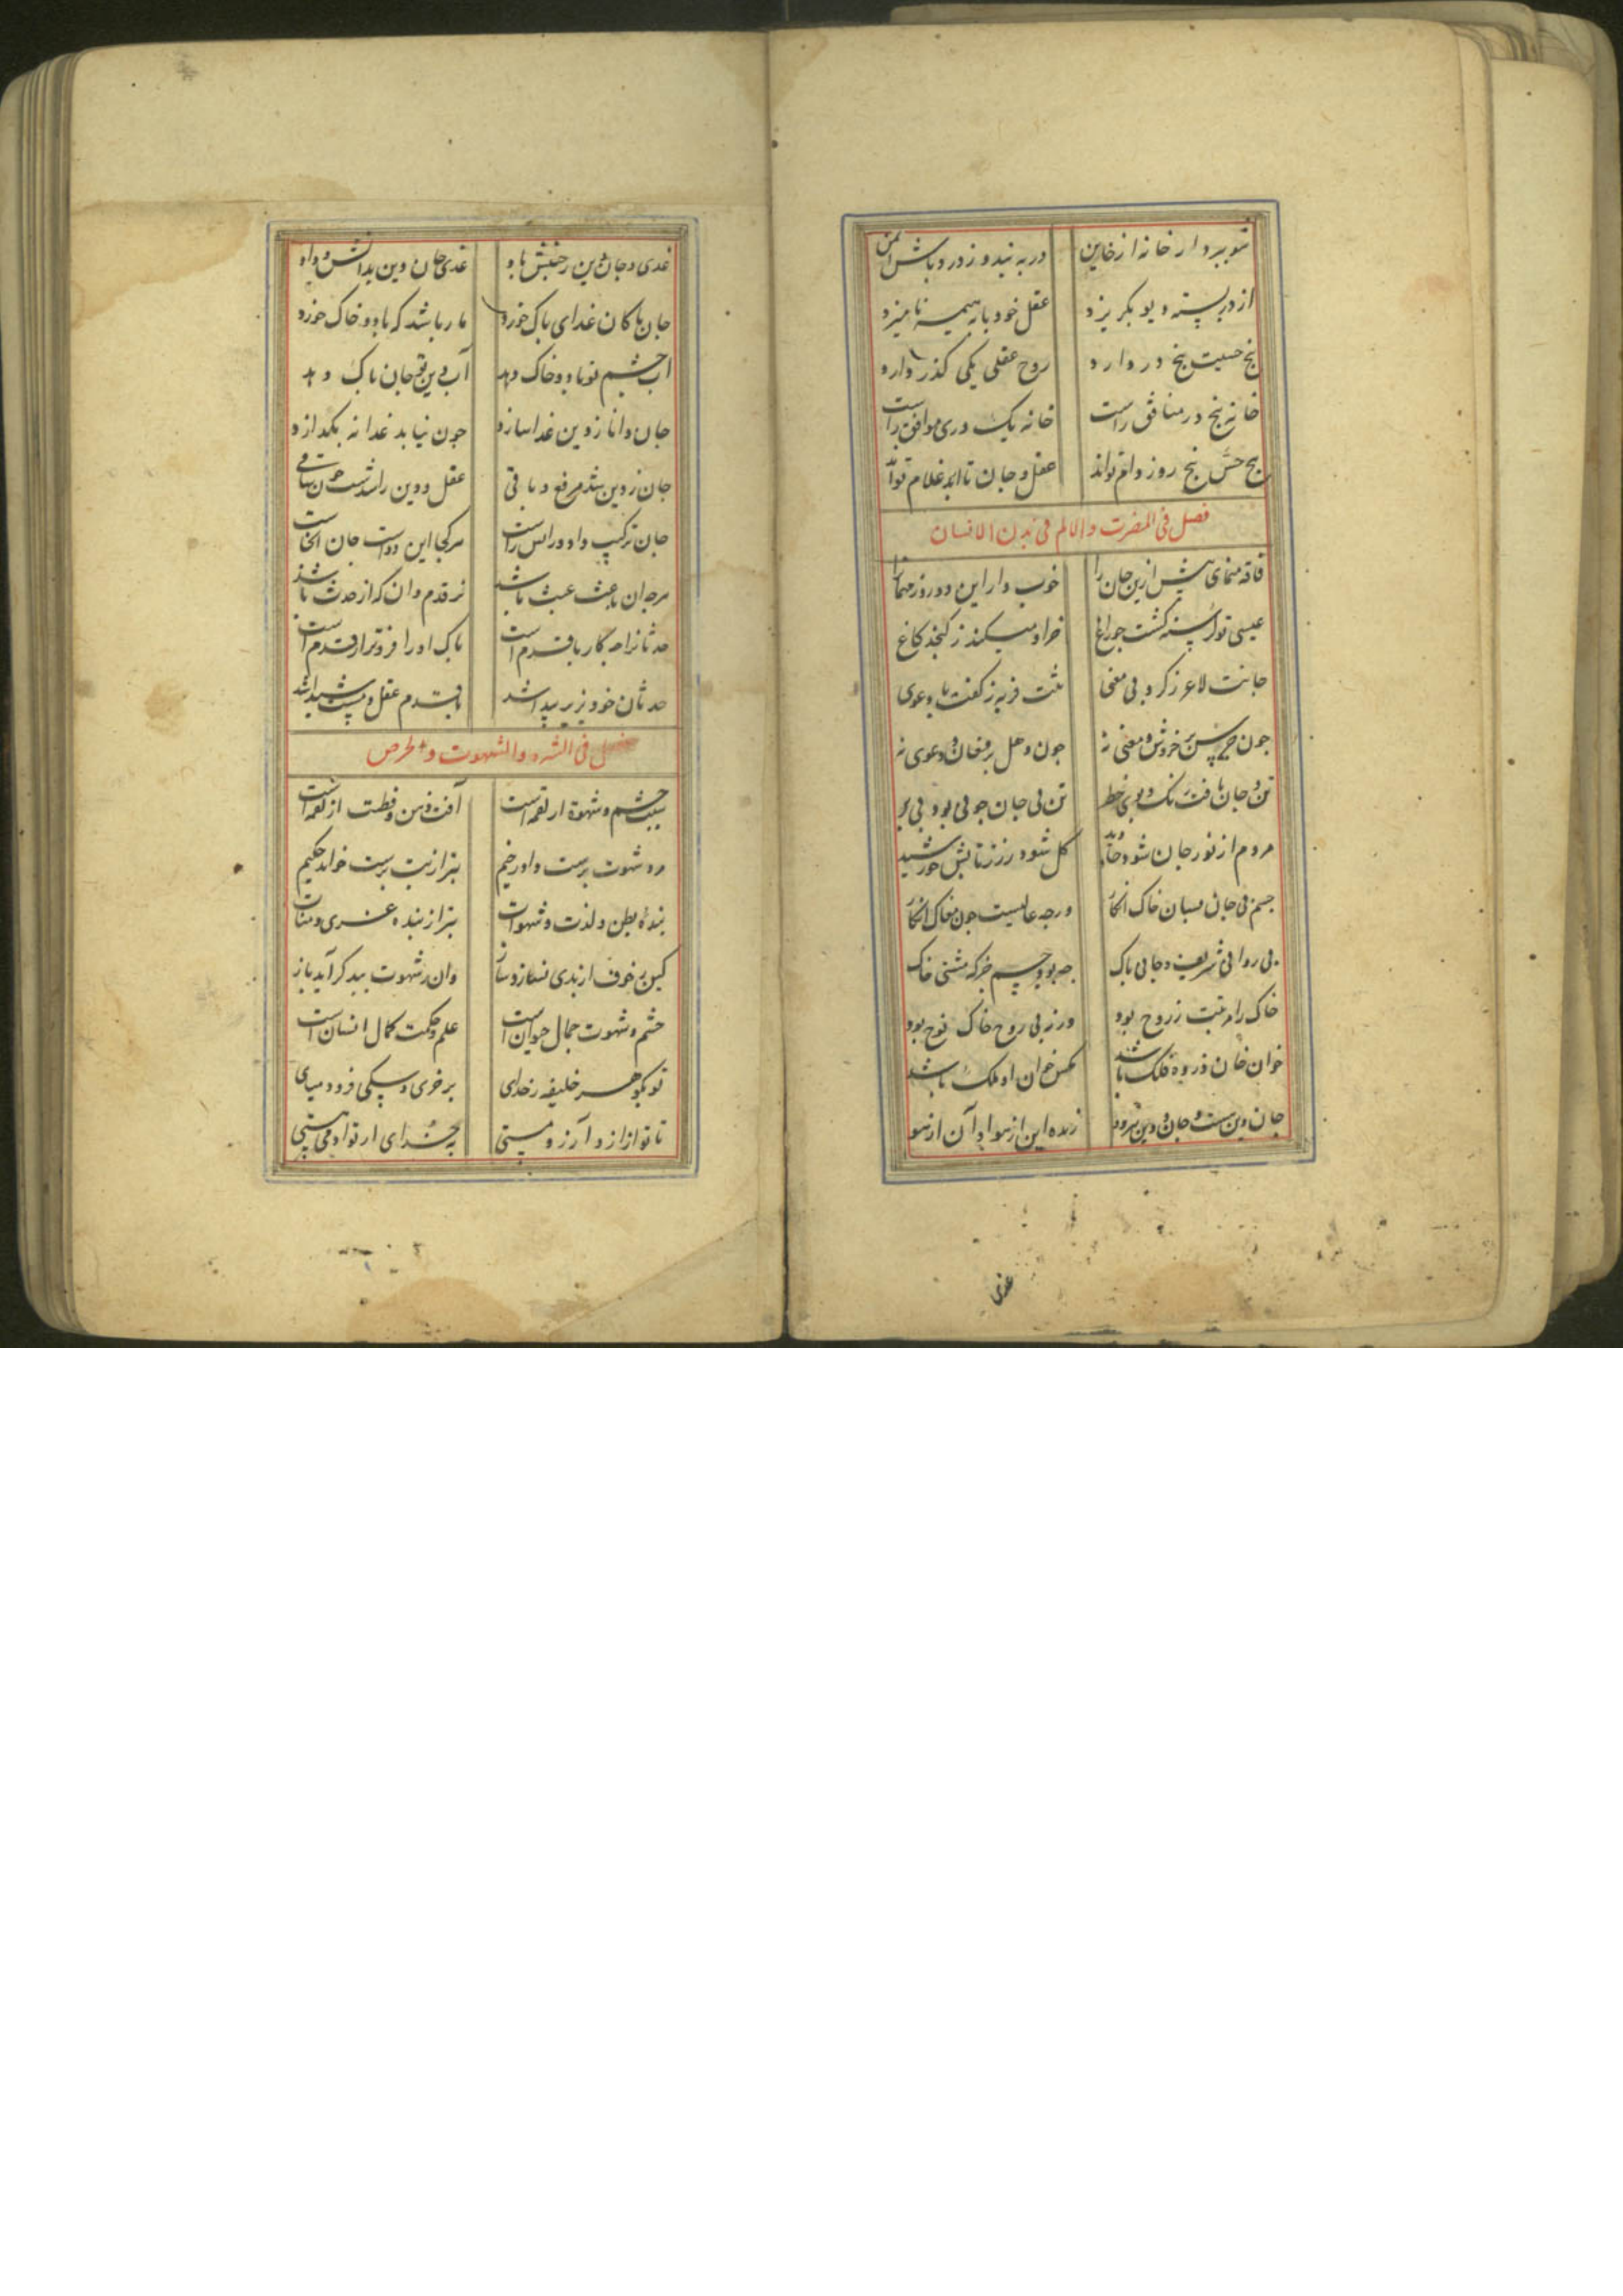 تو بپرداز خانه از خاین در به بند و ز درد باش ایمن
از در بسته دیو بگریزد عقل خود با بهیمه نامیزد
پنج حسیت پنج در دارد روح عقلی یکی گذر دارد
خانه پنج در منافق راست خانه یک دری موافق راست
پنج حس پنج روز دام تواند عقل و جان تا ابد غلام تواند
فصل فی المضرت والالم فی بدن الانسان
فاقه منمای بیش ازین جان را خوب دار این دو روز مهمانرا
عیسی تو گرسنه گشت جو زاغ خر او میکند ز کنجد کاغ
جانت لاغر ز کرد بی معنی تنت فربه ز کفت با دعوی
جون جرس پر خروش و معنی نه جون دهل پر فغان و دعوی نه
تن و جان یافت رنگ و بوی خطر تن بی جان جو نی بود بی بر
مردم از نور جان شود جاوید کل شود زر ز تابش خورشید
جسم بی جان بسان خاک انکار ورجه عالیست جون مغاک انکار
بی روانی شریف و جانی باک جه بود جسم جز که مشتی خاک
خاک را مرتبت ز روح بود ورنه بی روح خاک نوح بود
خوان جان ذروه فلک باشد مکس خوان او ملک باشد
جان دین ست و جان دین هر دو زنده این از هوا و آن از هو
غدی
غدی جان ز جنبش باد غدی جان دین بدانش و داد
جان باکان غدای باک خورد مار باشد که باد و خاک خورد
آب جسم تو باد و خاک دهد آب دین تو جان باک دهد
جان دانا ز دین غدا سازد جون نیابد غدا نه بکدازد
جان ز دین شد مرفع و باقی عقل و دین را شدست جون ساقی
جان ترکیب داد و رانس راست هر کجا این دو است جان انجاست
هرجه ان باعث عبث باشد نز قدم دان که از حدث باشد
حدثانرا جه کار با قدم است باک او را فزونتر از قدم است
حدثان خود بزیر بید اشد با قدم عقل و شید اشد
فصل فی الشره والشهوت والحرص
سبب خشم و شهوة از لقمه است آفت ذهن و فطنت از لقمه است
مرد شهوت برست را در خیم بتر از بت برست خواند حکیم
بنده بطن و لذت و شهوات بتر از بنده عزی و منات
کین بر خوف از بدی نسازد ساز وان ز شهوت ببد کراید باز
خشم و شهوت جمال حیوان است علم و حکمت کمال انسان است
تو بکوهر خلیفه ز خدای بر خری و سکی فرود میای
تا تو از از و آرزو مستی به خدای ار تو ادمی هستی